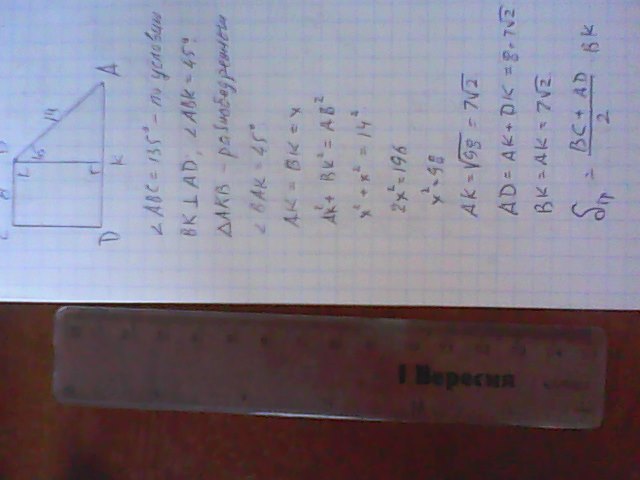 A
14
K
D
∠ABC = 135° - по условию
BK ⊥ AD, ∠ABK = 45°
△AKB - равнобедренный
∠BAK = 45°
AK = BK = x
AK² + BK² = AB²
x² + x² = 14²
2x² = 196
x² = 98
AK = √98 = 7√2
AD = AK + DK = 8 + 7√2
BK = AK = 7√2
Sтр = (BC + AD)/2 · BK
1 Вересня